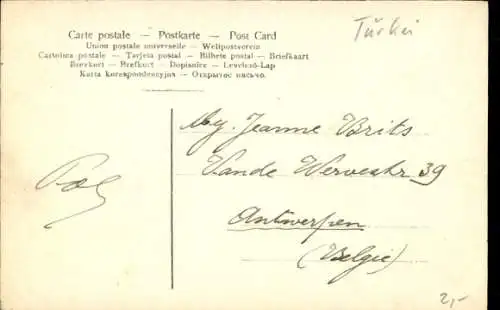 Carte postale — Postkarte — Post Card
Union postale universelle — Weltpostverein
Cartolina postale — Tarjeta postal — Bilhete postal — Briefkaart
Brevkort — Brefkort — Dopisnice — Levelező-Lap
Karta korespondencyjna — Открытое письмо.
Türkei
Jeanne Brits
Vande Wervestr 39
Antwerpen
(Belgie)
2,-